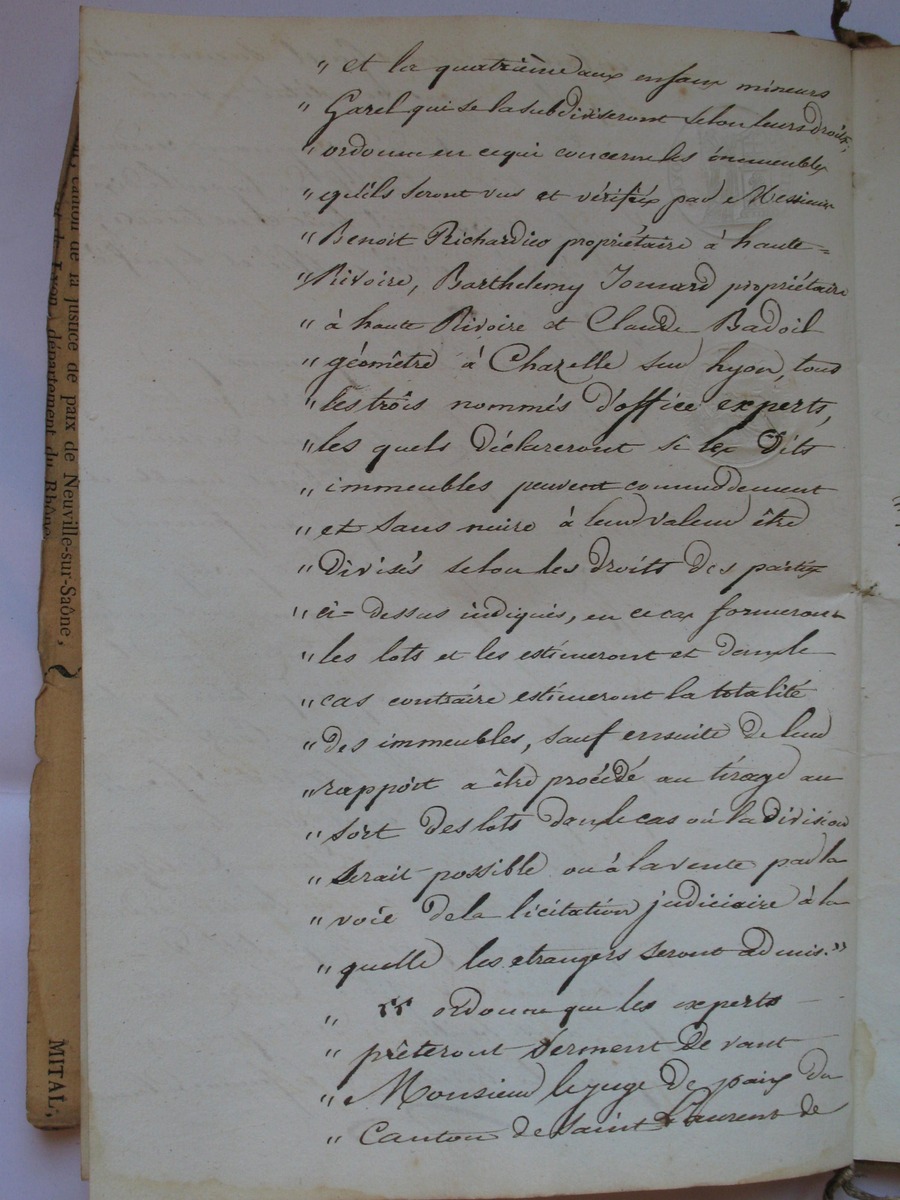 " et la quatrième aux enfans mineurs
" Garel qui se la subdiviseront selon leurs droits,
" ordonne en ce qui concerne les immeubles
" qu'ils seront vus et vérifiés par Messieurs
" Benoit Richard propriétaire à haute=
" Rivoire, Barthelemy Jomard propriétaire
" à haute Rivoire et Claude Badoil
" géomètre à Chazelle sur Lyon, tous
" les trois nommés d'office experts,
" les quels déclareront si les dits
" immeubles peuvent commodement
" et sans nuire à leur valeur être
" divisés selon les droits des parties
" ci-dessus indiqués, en ce cas formeront
" les lots et les estimeront et dans le
" cas contraire estimeront la totalité
" des immeubles, sauf ensuite de leur
" rapport a être procédé au tirage au
" sort des lots dans le cas où la division
" serait possible ou à la vente par la
" voie de la licitation judiciaire à la
" quelle les etrangers seront admis."
" " ordonne que les experts
" prêteront serment de vant
" Monsieur le juge de paix du
" Canton de Saint Laurent de
canton de la justice de paix de Neuville-sur-Saône,
de Lyon, département du Rhône
MITAL,